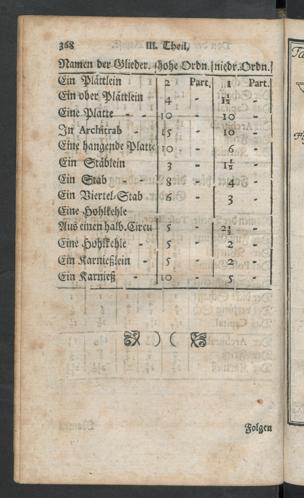 368 III. Theil,
Namen der Glieder. hohe Ordn. niedr. Ordn.
Ein Plättlein 2 Part. 1 Part.
Ein ober Plättlein 4 - 1½ -
Eine Platte - - 10 - 10 -
In Architrab - 15 - 10 -
Eine hangende Platte 10 - 6 -
Ein Stäblein 3 - 1½ -
Ein Stab 8 - 4 -
Ein Viertel-Stab 6 - 3 -
Eine Hohlkehle
Aus einen halb. Circu 5 - 2½ -
Eine Hohlkehle - 5 - 2 -
Ein Karnießlein - 5 - 2 -
Ein Karnieß - 10 - 5 -
) (
Folgen